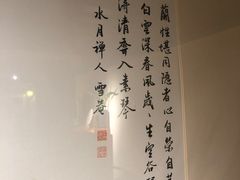 蘭性堪同隱者心自榮自
白雲深春風歲歲生空谷
得清齋入素琴
水月禅人雪菴